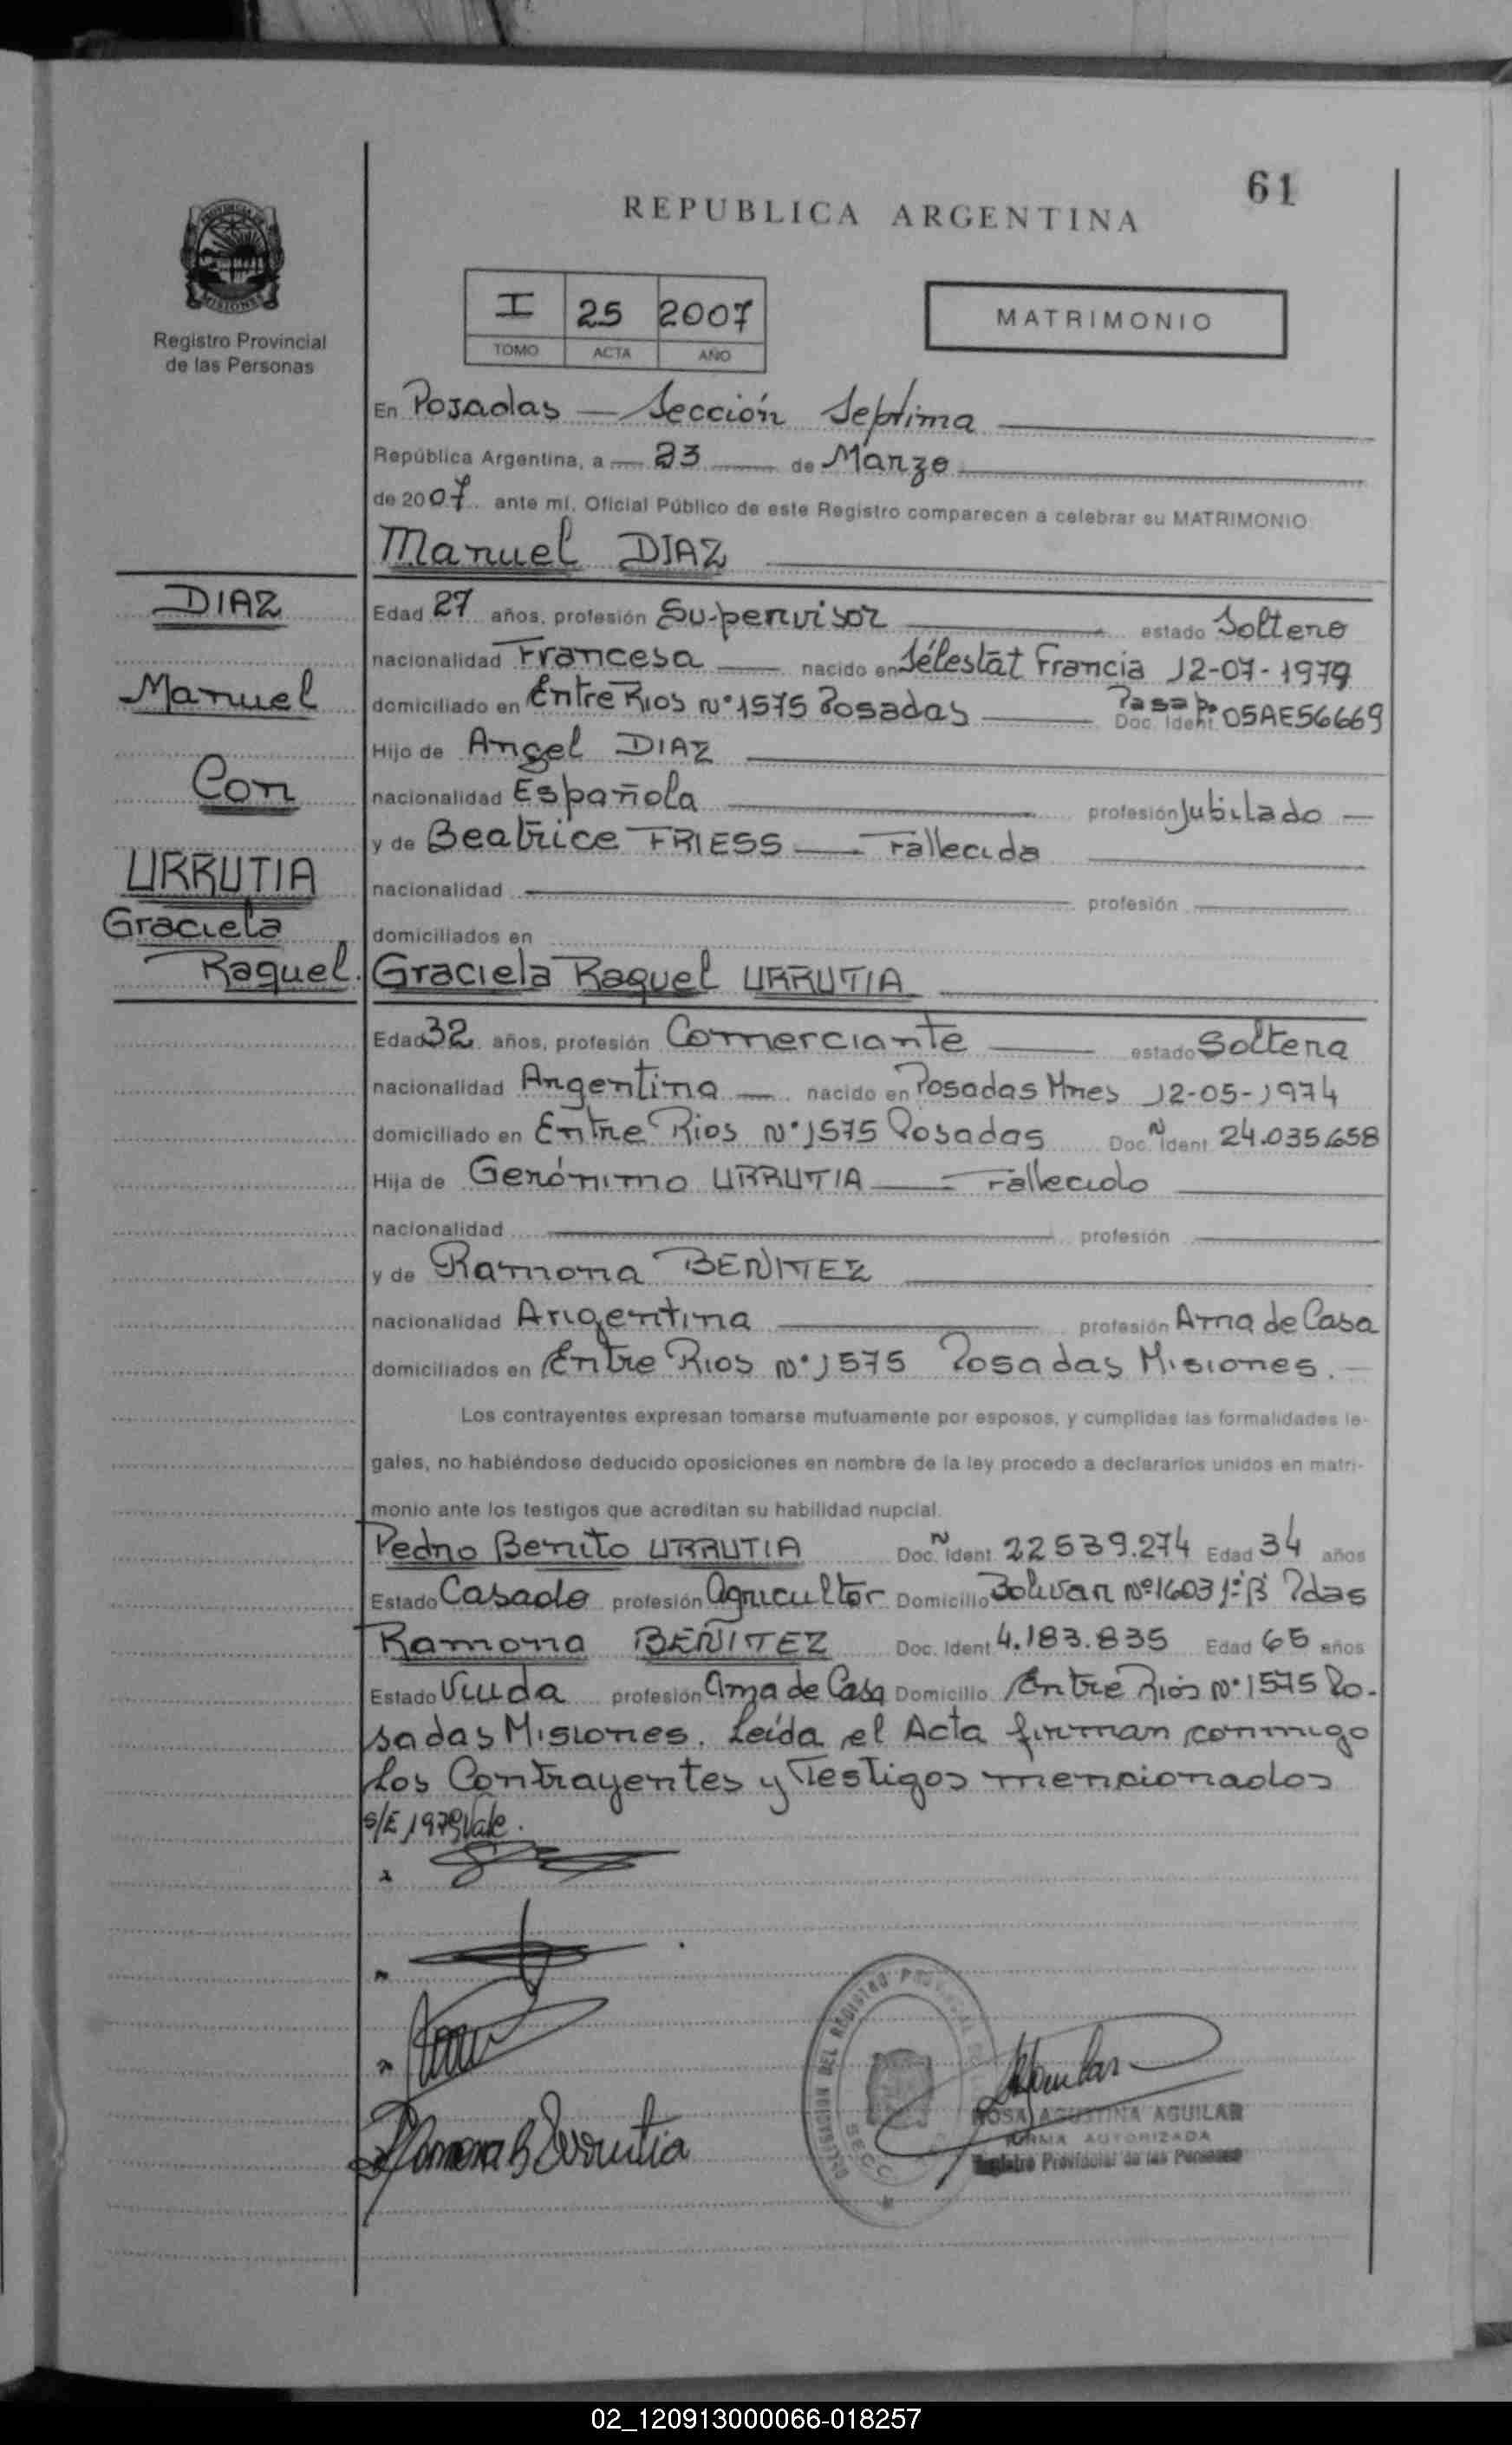 61
REPUBLICA ARGENTINA
PROVINCIA DE
MISIONES
Registro Provincial
de las Personas
I 25 2007
TOMO ACTA AÑO
MATRIMONIO
En Posadas — Sección Septima
República Argentina, a 23 de Marzo
de 2007 ante mí, Oficial Público de este Registro comparecen a celebrar su MATRIMONIO
Manuel DIAZ
DIAZ
Manuel
Con
URRUTIA
Graciela
Raquel.
Edad 27 años, profesión Supervisor estado Soltero
nacionalidad Francesa nacido en Sélestat Francia 12-07-1979
domiciliado en Entre Rios Nº 1575 Posadas Pasap. Doc. Ident. 05AE56669
Hijo de Angel DIAZ
nacionalidad Española profesión Jubilado
y de Beatrice FRIESS — Fallecida
nacionalidad profesión
domiciliados en
Graciela Raquel URRUTIA
Edad 32 años, profesión Comerciante estado Soltera
nacionalidad Argentina nacido en Posadas Mnes 12-05-1974
domiciliado en Entre Rios Nº 1575 Posadas Doc. N Ident. 24.035.658
Hija de Gerónimo URRUTIA — Fallecido
nacionalidad profesión
y de Ramona BENITEZ
nacionalidad Argentina profesión Ama de Casa
domiciliados en Entre Rios Nº 1575 Posadas Misiones.
Los contrayentes expresan tomarse mutuamente por esposos, y cumplidas las formalidades le-
gales, no habiéndose deducido oposiciones en nombre de la ley procedo a declararlos unidos en matri-
monio ante los testigos que acreditan su habilidad nupcial.
Pedro Benito URRUTIA Doc. N Ident. 22539.274 Edad 34 años
Estado Casado profesión Agricultor Domicilio Bolivar Nº 1603 1º B Pdas
Ramona BENITEZ Doc. Ident. 4.183.835 Edad 65 años
Estado Viuda profesión Ama de Casa Domicilio Entre Rios Nº 1575 Po-
sadas Misiones. Leída el Acta firman conmigo
los Contrayentes y Testigos mencionados
S/E 1979 Vale.
Ramona B Urrutia
ROSA AGUSTINA AGUILAR
FIRMA AUTORIZADA
Registro Provincial de las Personas
02_120913000066-018257